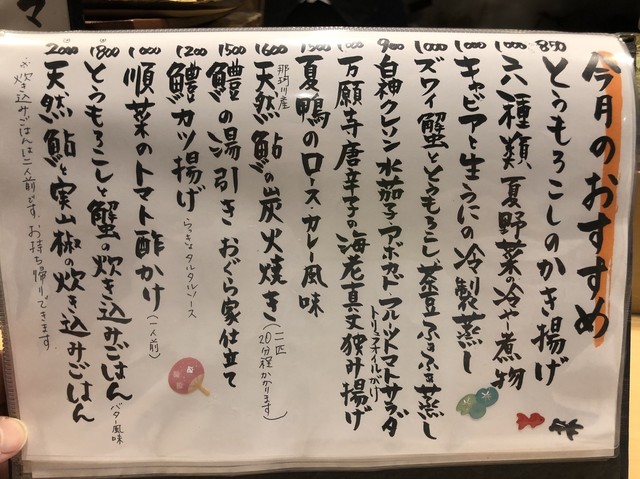 今月のおすすめ
850 とうもろこしのかき揚げ
1000 六種類、夏野菜の冷や煮物
1000 キャビアと生うにの冷製蒸し
1000 ズワイ蟹ととうもろこし、茶豆ふぁふぁ蒸し
900 白神クレソン 水茄子 アボカド フルーツトマトサラダ
トリュフオイルがけ
1000 万願寺唐辛子の海老真丈挟み揚げ
1500 夏鴨のロース カレー風味
1600 那珂川産 天然鮎の炭火焼き (二匹
20分程かかります)
1500 鱧の湯引き おぐら家仕立て
1200 鱧カツ揚げ らっきょタルタルソース
1000 順菜のトマト酢かけ (一人前)
1800 とうもろこしと蟹の炊き込みごはん バター風味
2000 天然鮎と実山椒の炊き込みごはん
※炊き込みごはんは二人前です。お持ち帰りできます。
マ